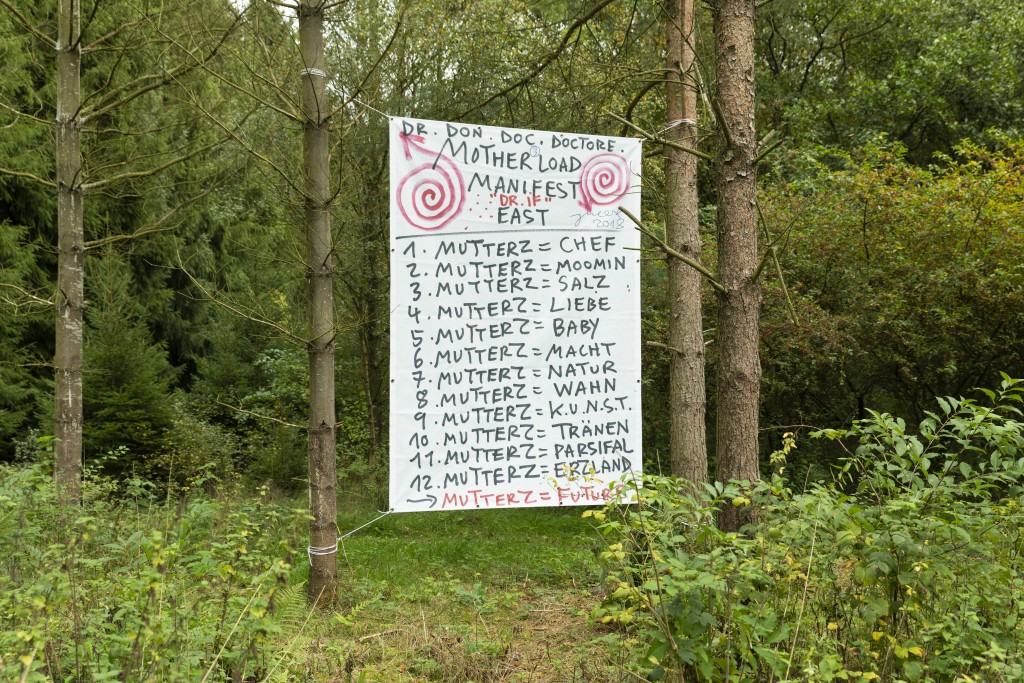 DR. DON. DOC. DOCTORE.
MOTHER LOAD
MANIFEST
"DR. IF"
EAST
2018
1. MUTTERZ = CHEF
2. MUTTERZ = MOOMIN
3. MUTTERZ = SALZ
4. MUTTERZ = LIEBE
5. MUTTERZ = BABY
6. MUTTERZ = MACHT
7. MUTTERZ = NATUR
8. MUTTERZ = WAHN
9. MUTTERZ = K.U.N.S.T.
10. MUTTERZ = TRÄNEN
11. MUTTERZ = PARSIFAL
12. MUTTERZ = ERZLAND
→ MUTTERZ =